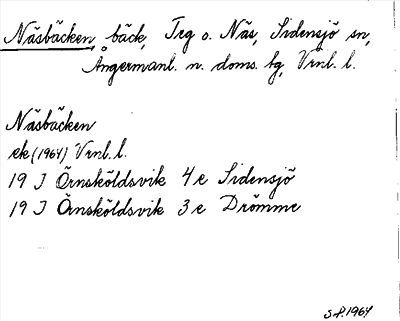 Näsbäcken, bäck, Trg o. Näs, Sidensjö sn,
Ångermanl. n. doms. tg, Vrnl. l.
Näsbäcken
ek (1964) Vrnl. l.
19 J Örnsköldsvik 4e Sidensjö
19 J Örnsköldsvik 3e Drömme
S.P. 1964